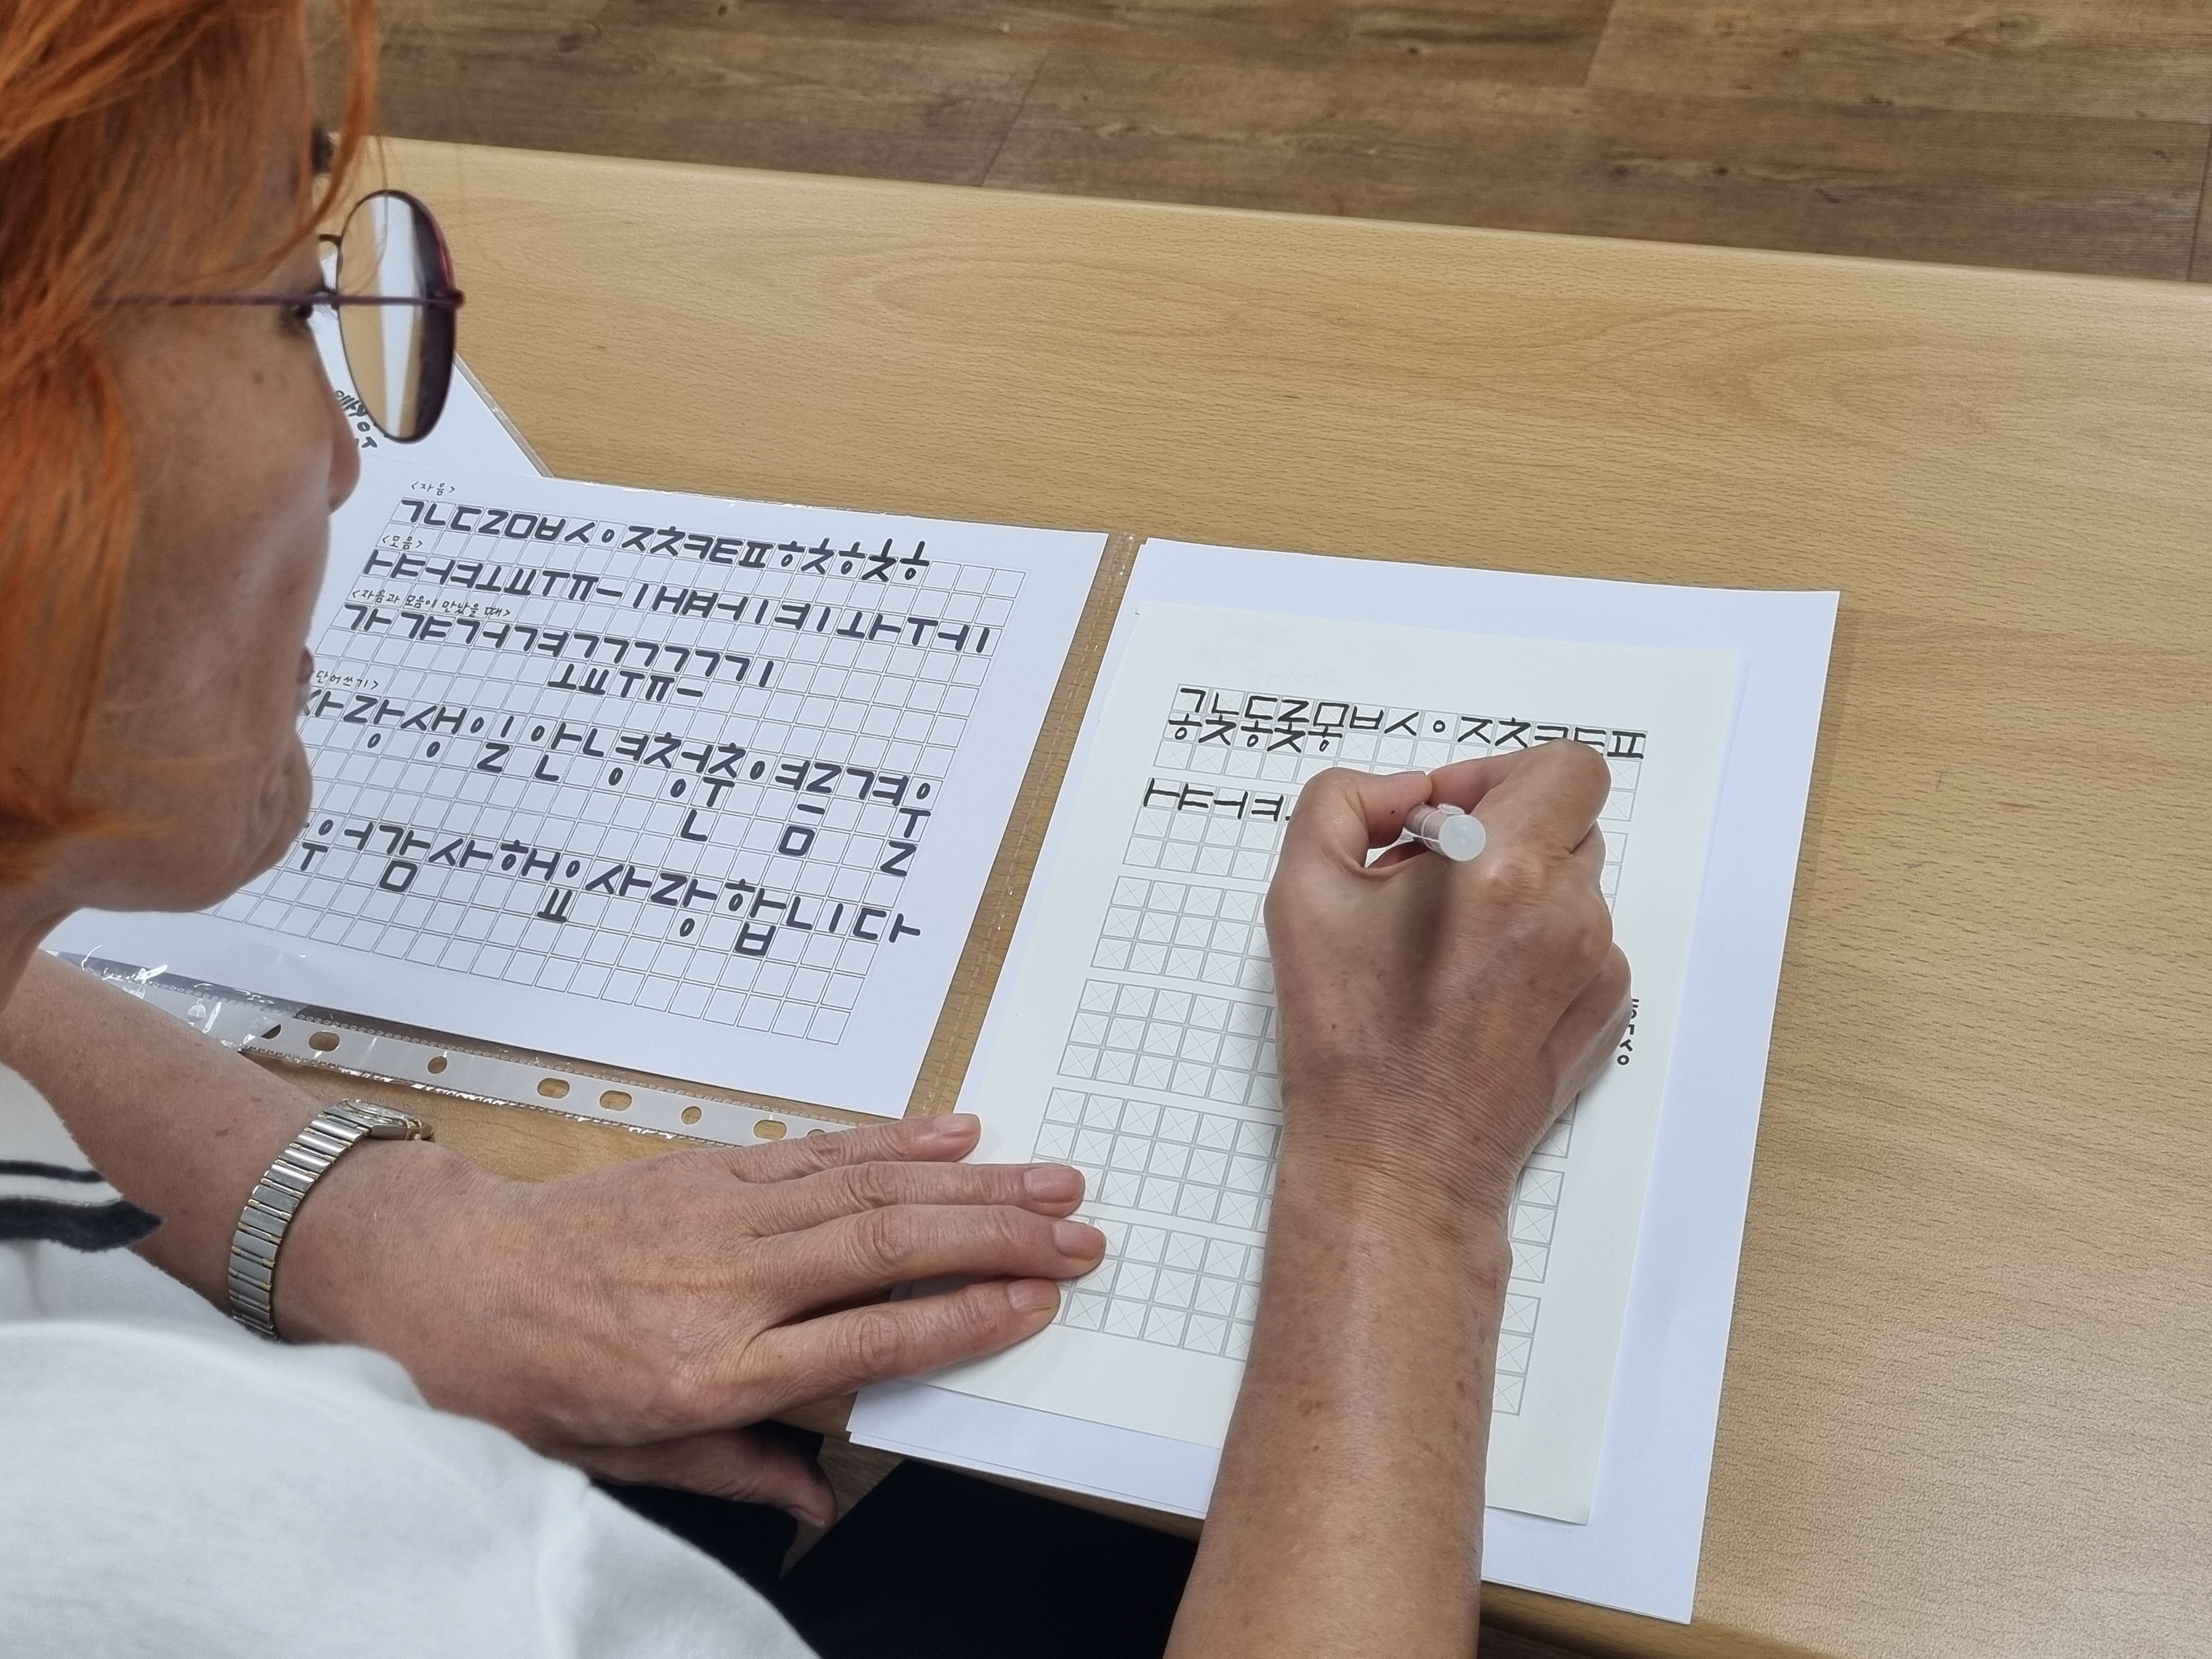 <자음>
ㄱㄴㄷㄹㅁㅂㅅㅇㅈㅊㅋㅌㅍㅎㅊㅎㅊㅎ
<모음>
ㅏㅑㅓㅕㅗㅛㅜㅠㅡㅣㅐㅒㅔㅖㅘㅝㅣ
<자음과 모음이 만났을 때>
가갸거겨고교구규그기
단어쓰기>
사랑생일안녕청춘여름겨울
우어감사해요사랑합니다
ㄱㄴㄷㄹㅁㅂㅅㅇㅈㅊㅋㅌㅍ
ㅎㅊㅎㅊㅎ
ㅏㅑㅓㅕ